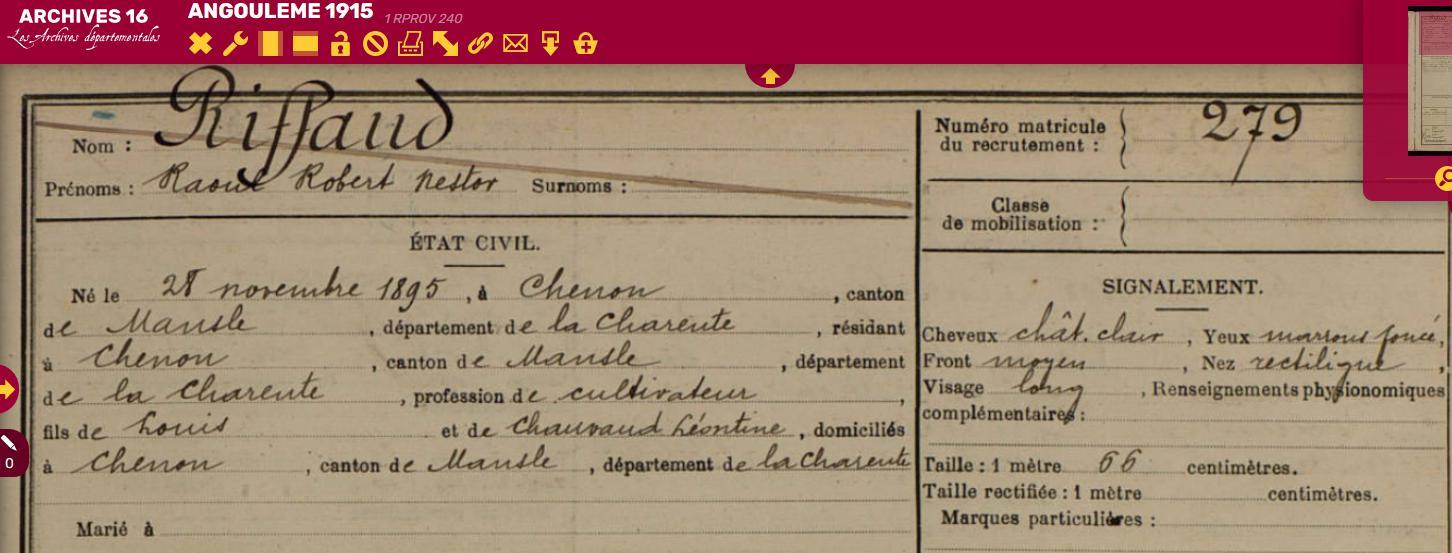 ARCHIVES 16
Les Archives départementales
ANGOULEME 1915 1 RPROV 240
Nom : Riffaud
Prénoms : Raoul Robert Nestor Surnoms :
Numéro matricule du recrutement : 279
Classe de mobilisation :
ÉTAT CIVIL.
Né le 28 novembre 1895, à Chenon, canton
de Mansle, département de la Charente, résidant
à Chenon, canton de Mansle, département
de la Charente, profession de cultivateur,
fils de Louis et de Chauvaud Léontine, domiciliés
à Chenon, canton de Mansle, département de la Charente
Marié à
SIGNALEMENT.
Cheveux chât. clair, Yeux marrons foncé,
Front moyen, Nez rectiligne,
Visage long, Renseignements physionomiques
complémentaires :
Taille : 1 mètre 66 centimètres.
Taille rectifiée : 1 mètre centimètres.
Marques particulières :
0